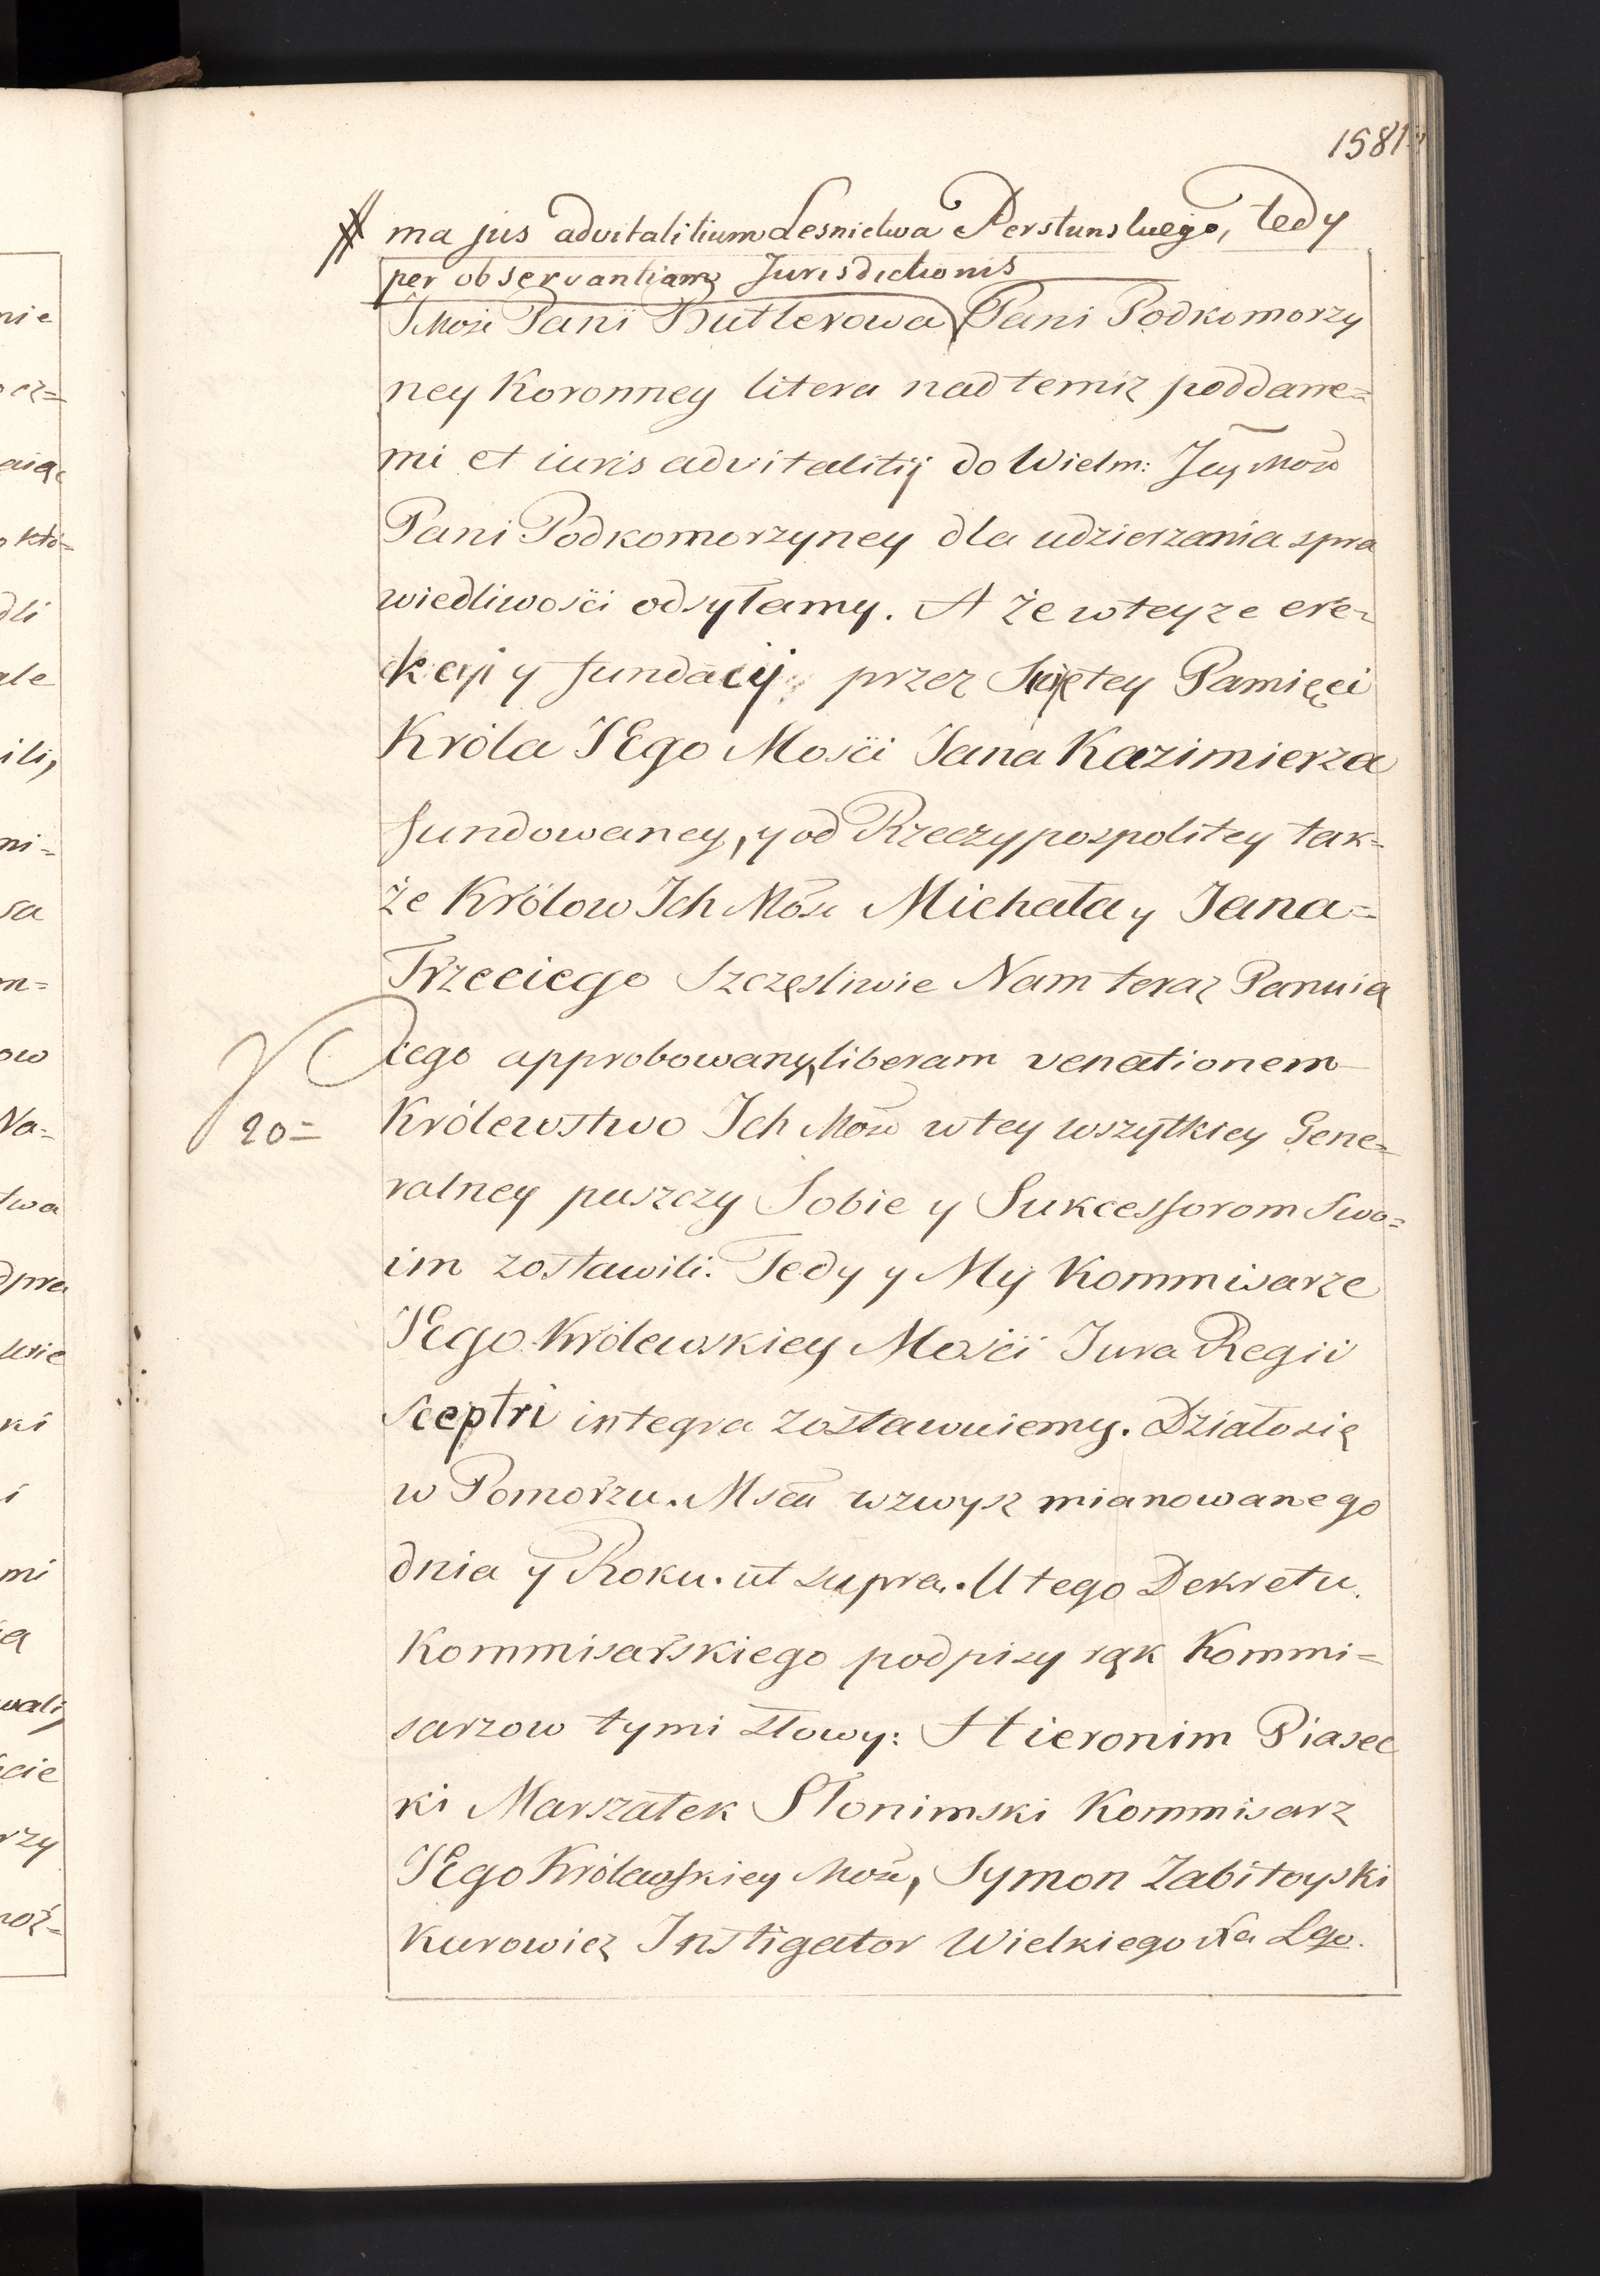 1581
ma jus advitalitium Lesnictwa Perstunskiego, tedy
per observantiam Jurisdictionis
JMości Pani Butlerowa Pani Podkomorzy
ney Koronney litera nad temiz poddane=
mi et iuris advitalitij do Wielm: Jey Mości
Pani Podkomorzyney dla udzierzania spra
wiedliwości odsyłamy. A że wteyze ere=
kcyi y fundacij przez Swiętey Pamięci
Króla JEgo Mości Jana Kazimierza
fundowaney, y od Rzeczypospolitey tak=
że Królow Ich Mości Michała y Jana=
Trzeciego Szczęsliwie Nam teraz Panuią
cego approbowany, liberam venationem
20= Królewstwo Ich Mość w tey wszytkiey Gene=
ralney puszczy Sobie y Sukcessorom Swo=
im zostawili. Tedy y My Kommisarze
JEgo Królewskiey Mości Jura Regii
sceptri integra zostawuiemy. Działo się
w Pomorzu. Msca wzwysz mianowanego
dnia y Roku. ut supra. U tego Dekretu
Kommisarskiego podpisy rąk Kommi=
sarzow tymi słowy: Hieronim Piasec
ki Marszałek Słonimski Kommisarz
JEgo Królewskiey Mości, Symon Zabitoyski
Kurowicz Instigator Wielkiego Xa Lgo.
nie